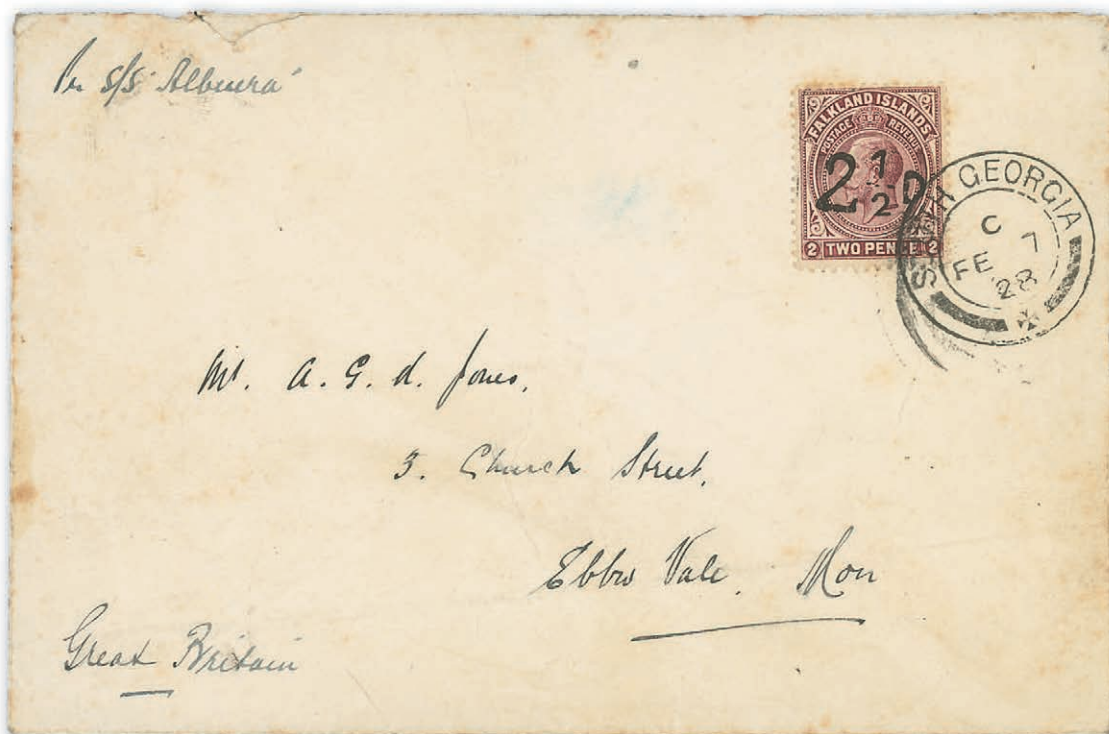 Per s/s 'Albuera'
FALKLAND ISLANDS
POSTAGE REVENUE
2 1/2 D
2 TWO PENCE 2
SOUTH GEORGIA
C
FE 7
28
Mr. A. G. d. Jones,
3. Church Street,
Ebbw Vale, Mon
Great Britain